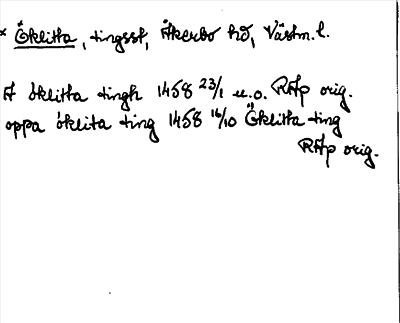 * Öklitta, tingsst, Åkerbo hd, Västm. l.
A öklitta tingh 1458 23/1 u.o. RAp orig.
oppa öklita ting 1458 16/10 Öklitta ting
RAp orig.